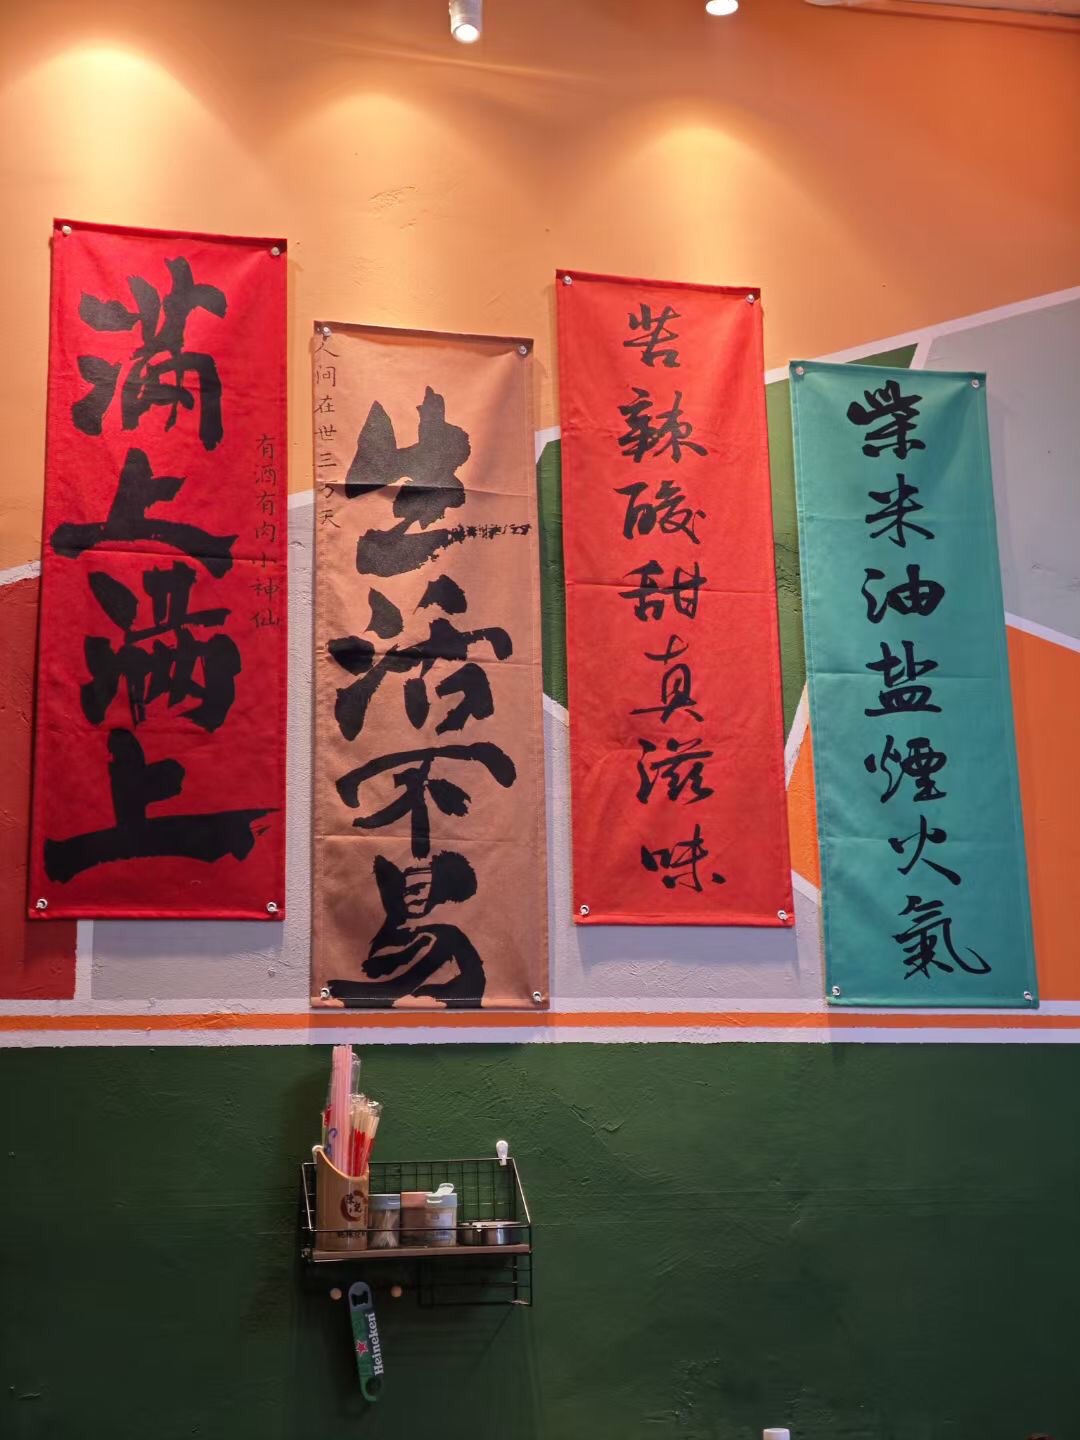 满上满上
有酒有肉小神仙
人间在世三万天
生活不易
苦辣酸甜真滋味
柴米油盐煙火氣
Heineken